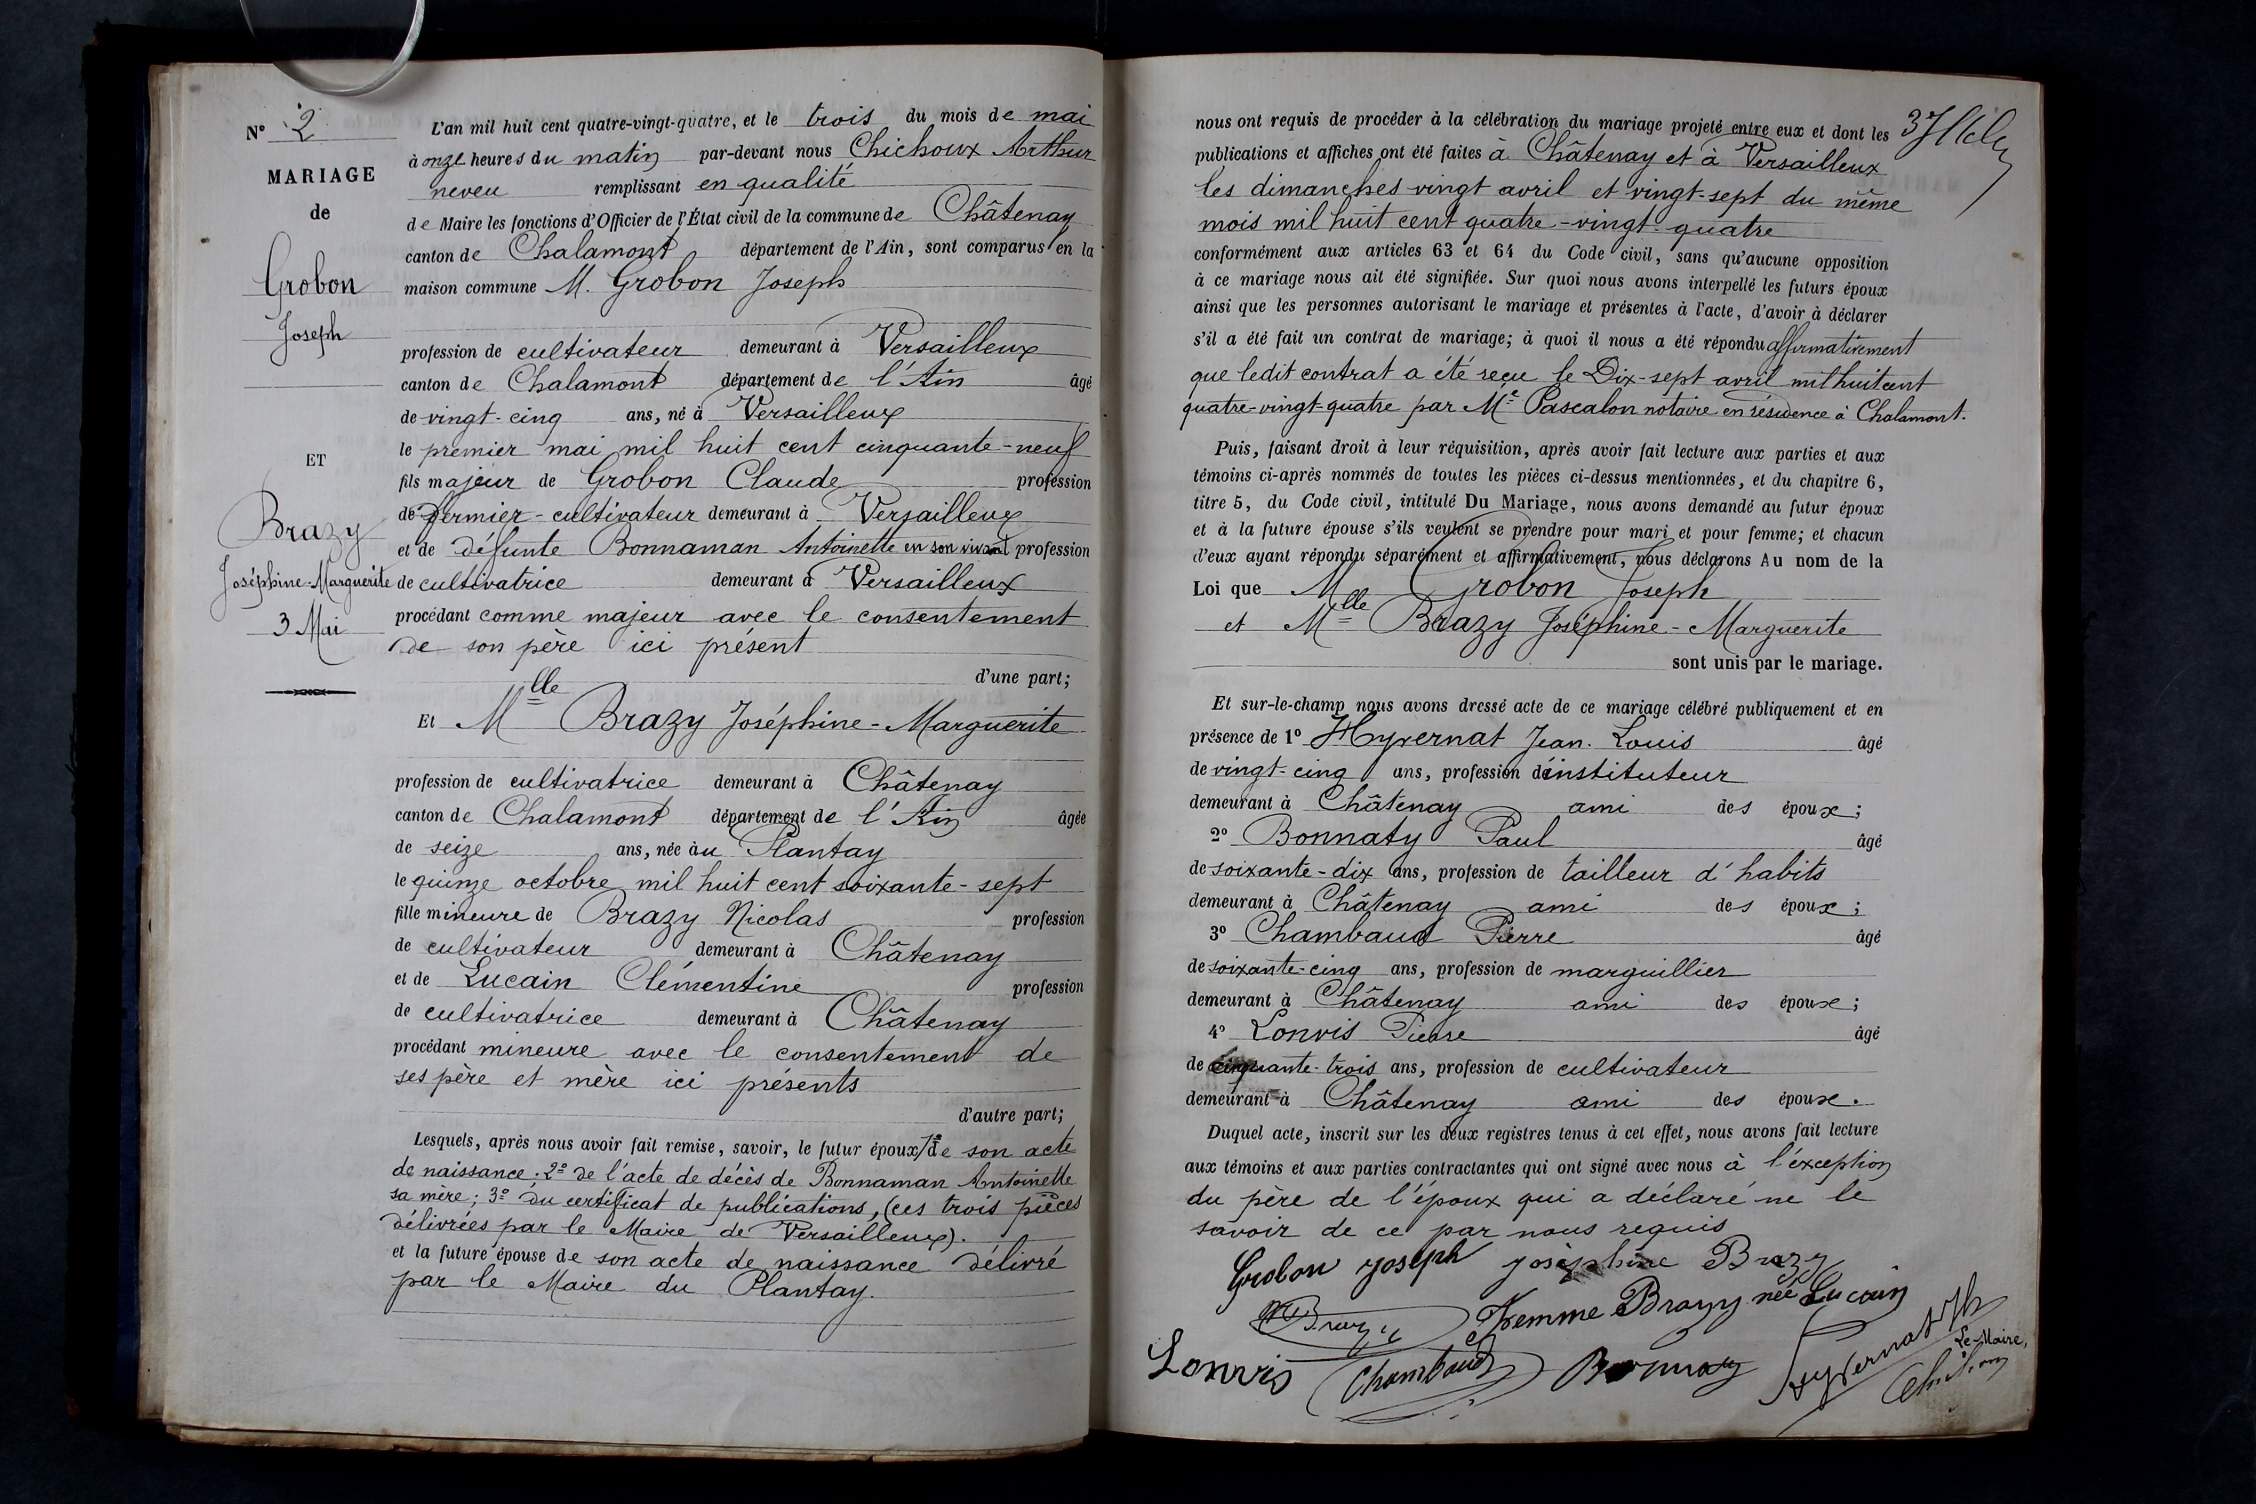 N° 2
MARIAGE
de
Grobon
Joseph
ET
Brazy
Joséphine-Marguerite
3 Mai
L'an mil huit cent quatre-vingt-quatre, et le trois du mois de mai
à onze heures du matin par-devant nous Chichoux Arthur
neveu remplissant en qualité
de Maire les fonctions d'Officier de l'État civil de la commune de Châtenay
canton de Chalamont département de l'Ain, sont comparus en la
maison commune M. Grobon Joseph
profession de cultivateur demeurant à Versailleux
canton de Chalamont département de l'Ain âgé
de vingt-cinq ans, né à Versailleux
le premier mai mil huit cent cinquante-neuf
fils majeur de Grobon Claude profession
de fermier-cultivateur demeurant à Versailleux
et de défunte Bonnaman Antoinette en son vivant profession
de cultivatrice demeurant à Versailleux
procédant comme majeur avec le consentement
de son père ici présent
d'une part;
Et Mlle Brazy Joséphine-Marguerite
profession de cultivatrice demeurant à Châtenay
canton de Chalamont département de l'Ain âgée
de seize ans, née au Plantay
le quinze octobre mil huit cent soixante-sept
fille mineure de Brazy Nicolas profession
de cultivateur demeurant à Châtenay
et de Lucain Clémentine profession
de cultivatrice demeurant à Châtenay
procédant mineure avec le consentement de
ses père et mère ici présents
d'autre part;
Lesquels, après nous avoir fait remise, savoir, le futur époux 1° de son acte
de naissance; 2° de l'acte de décès de Bonnaman Antoinette
sa mère; 3° du certificat de publications, (ces trois pièces
délivrées par le Maire de Versailleux).
et la future épouse de son acte de naissance délivré
par le Maire du Plantay.
37
nous ont requis de procéder à la célébration du mariage projeté entre eux et dont les
publications et affiches ont été faites à Châtenay et à Versailleux
les dimanches vingt avril et vingt-sept du même
mois mil huit cent quatre-vingt-quatre
conformément aux articles 63 et 64 du Code civil, sans qu'aucune opposition
à ce mariage nous ait été signifiée. Sur quoi nous avons interpellé les futurs époux
ainsi que les personnes autorisant le mariage et présentes à l'acte, d'avoir à déclarer
s'il a été fait un contrat de mariage; à quoi il nous a été répondu affirmativement
que ledit contrat a été reçu le Dix-sept avril mil huit cent
quatre-vingt-quatre par Me Pascalon notaire en résidence à Chalamont.
Puis, faisant droit à leur réquisition, après avoir fait lecture aux parties et aux
témoins ci-après nommés de toutes les pièces ci-dessus mentionnées, et du chapitre 6,
titre 5, du Code civil, intitulé Du Mariage, nous avons demandé au futur époux
et à la future épouse s'ils veulent se prendre pour mari et pour femme; et chacun
d'eux ayant répondu séparément et affirmativement, nous déclarons Au nom de la
Loi que M. Grobon Joseph
et Mlle Brazy Joséphine-Marguerite
sont unis par le mariage.
Et sur-le-champ nous avons dressé acte de ce mariage célébré publiquement et en
présence de 1° Hyvernat Jean-Louis âgé
de vingt-cinq ans, profession d'instituteur
demeurant à Châtenay ami des époux;
2° Bonnaty Paul âgé
de soixante-dix ans, profession de tailleur d'habits
demeurant à Châtenay ami des époux;
3° Chambaud Pierre âgé
de soixante-cinq ans, profession de marguillier
demeurant à Châtenay ami des époux;
4° Lonvis Pierre âgé
de cinquante-trois ans, profession de cultivateur
demeurant à Châtenay ami des époux.
Duquel acte, inscrit sur les deux registres tenus à cet effet, nous avons fait lecture
aux témoins et aux parties contractantes qui ont signé avec nous à l'exception
du père de l'époux qui a déclaré ne le
savoir de ce par nous requis
Grobon Joseph Joséphine Brazy
Brazy Femme Brazy née Lucain
Lonvis Chambaud Hyvernat
Le Maire,